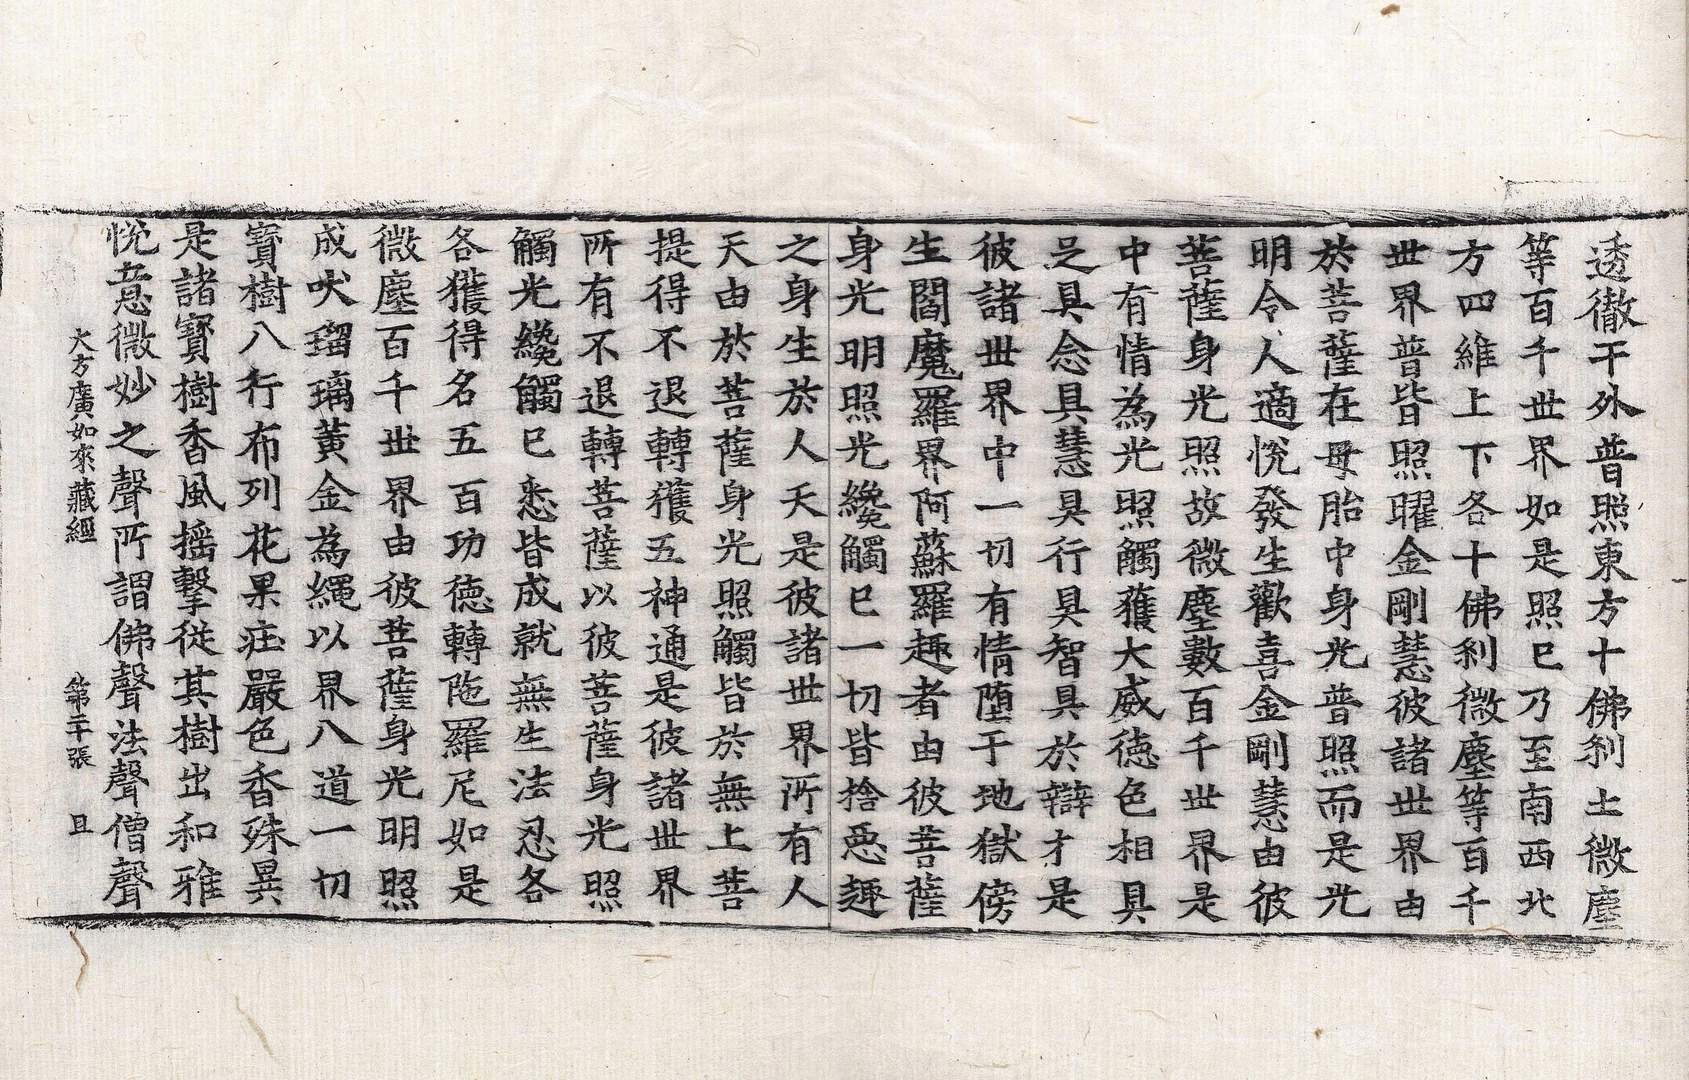 透徹于外普照東方十佛剎土微塵
等百千世界如是照已乃至南西北
方四維上下各十佛剎微塵等百千
世界普皆照曜金剛慧彼諸世界由
於菩薩在母胎中身光普照而是光
明令人適悅發生歡喜金剛慧由彼
菩薩身光照故微塵數百千世界是
中有情為光照觸獲大威德色相具
足具念具慧具行具智具於辯才是
彼諸世界中一切有情墮于地獄傍
生閻魔羅界阿蘇羅趣者由彼菩薩
身光明照光纔觸已一切皆捨惡趣
之身生於人天是彼諸世界所有人
天由於菩薩身光照觸皆於無上菩
提得不退轉獲五神通是彼諸世界
所有不退轉菩薩以彼菩薩身光照
觸光纔觸已悉皆成就無生法忍各
各獲得名五百功德轉陁羅尼如是
微塵百千世界由彼菩薩身光明照
成吠瑠璃黃金為繩以界八道一切
寶樹八行布列花果莊嚴色香殊異
是諸寶樹香風搖擊從其樹出和雅
悅意微妙之聲所謂佛聲法聲僧聲
大方廣如來藏經 第二十張 且